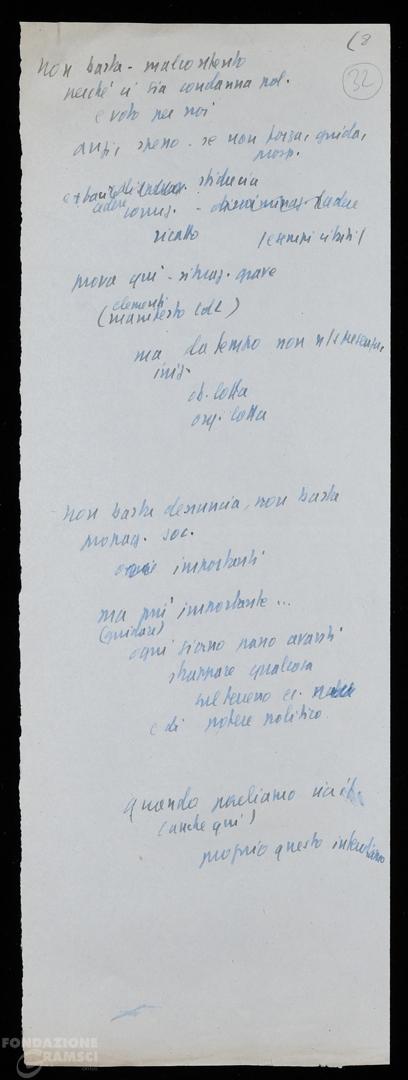 (8
32
non basta - malcontento
perché ci sia condanna pol.
e voto per noi
anzi, spesso - se non forza, guida,
prosp.
sfiducia
cadere corruz. - cadere
ricatto (esempi visibili)
prova qui - situaz. grave
elementi
(manifesto CdL)
ma da tempo non n/s presenza,
iniz.
ob. lotta
org. lotta
non basta denuncia, non basta
propag. soc.
importanti
ma più importante...
(guidare)
ogni giorno passo avanti
strappare qualcosa
sul terreno ec.
e di potere politico.
quando parliamo
(anche qui)
proprio questo intendiamo
FONDAZIONE
GRAMSCI
ONLUS